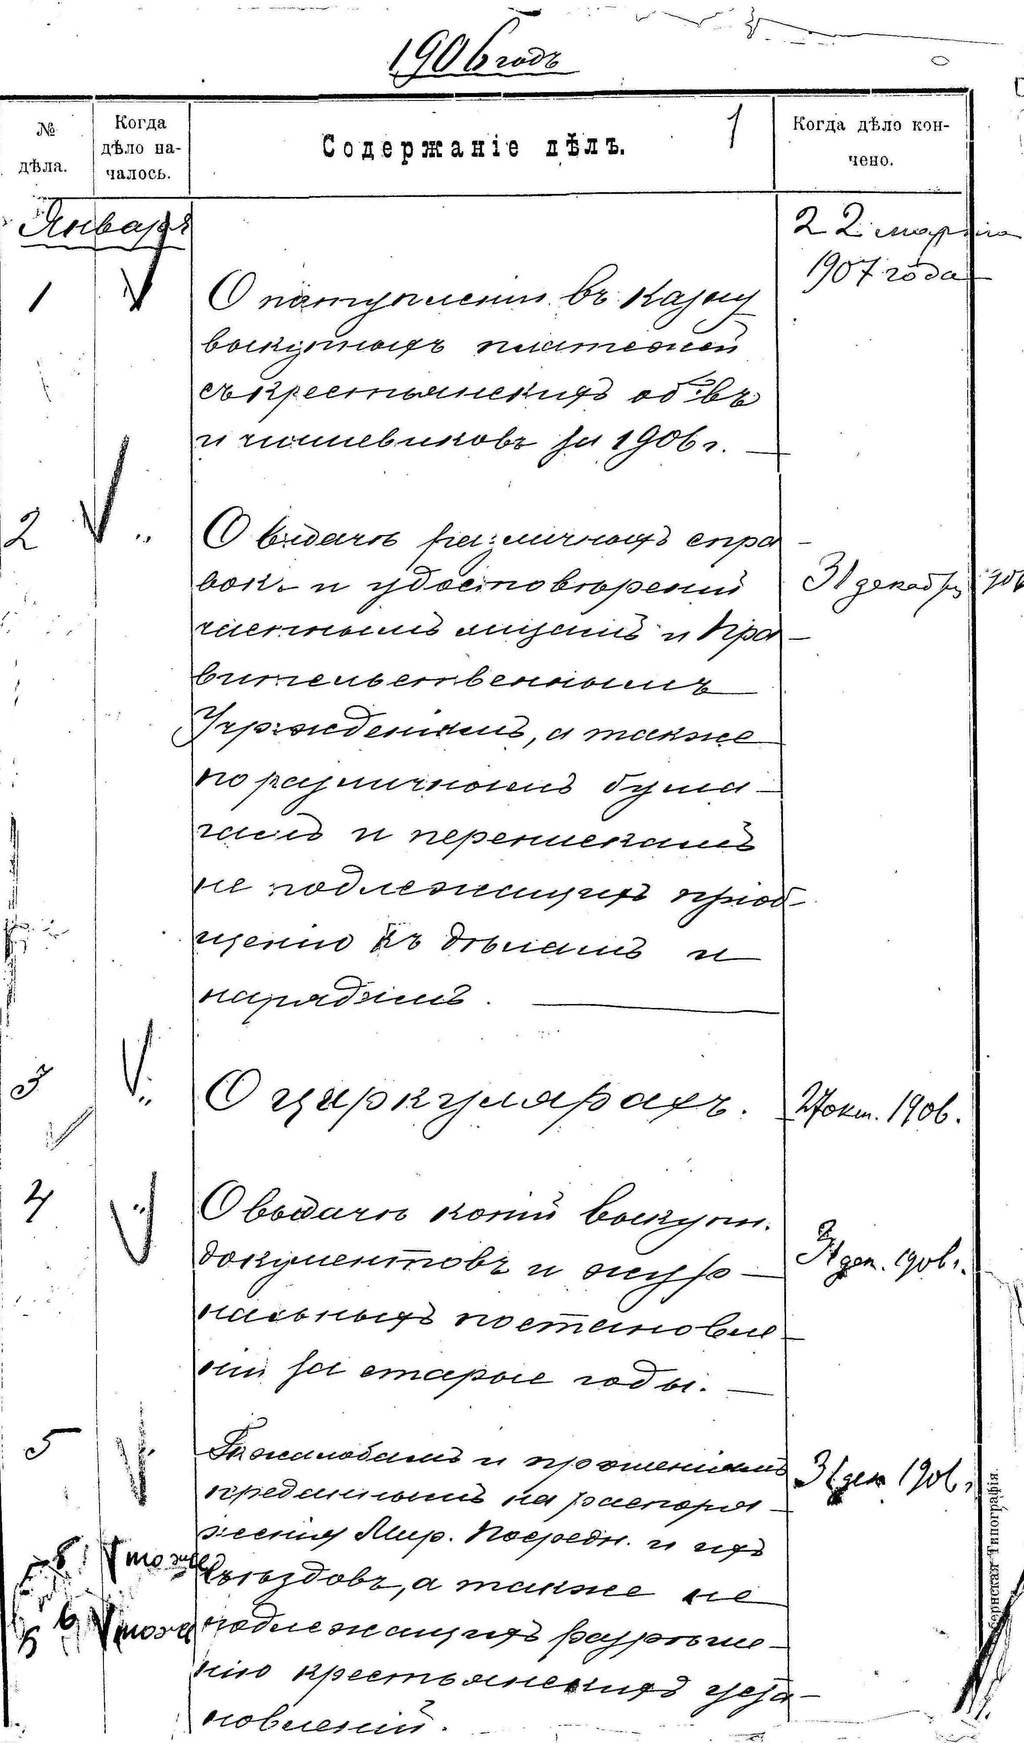 1906 годъ
№ дѣла.
Когда дѣло началось.
Содержаніе дѣлъ.
1
Когда дѣло кончено.
Январь
22 марта
1907 года
1
О поступленіи въ казну
выкупныхъ платежей
съ крестьянскихъ об-въ
и чиншевиковъ за 1906 г.
2
О выдачѣ различныхъ спра-
вокъ и удостовѣреній
частнымъ лицамъ и Пра-
вительственнымъ
Учрежденіямъ, а также
по различнымъ бума-
гамъ и перепискамъ
не подлежащихъ пріоб-
щенію къ дѣламъ и
нарядамъ.
31 декабря 1906
3
О циркулярахъ.
27 окт. 1906.
4
О выдачѣ копій выкупн.
документовъ и жур-
нальныхъ постановле-
ній за старые годы.
31 дек. 1906 г.
5
По жалобамъ и прошеніямъ
преданнымъ на распоря-
женія Мир. Посредн. и ихъ
Съѣздовъ, а также не
подлежащихъ разрѣше-
нію крестьянскихъ уста-
новленій.
31 дек 1906 г.
тоже
тоже
бернская Типографія.